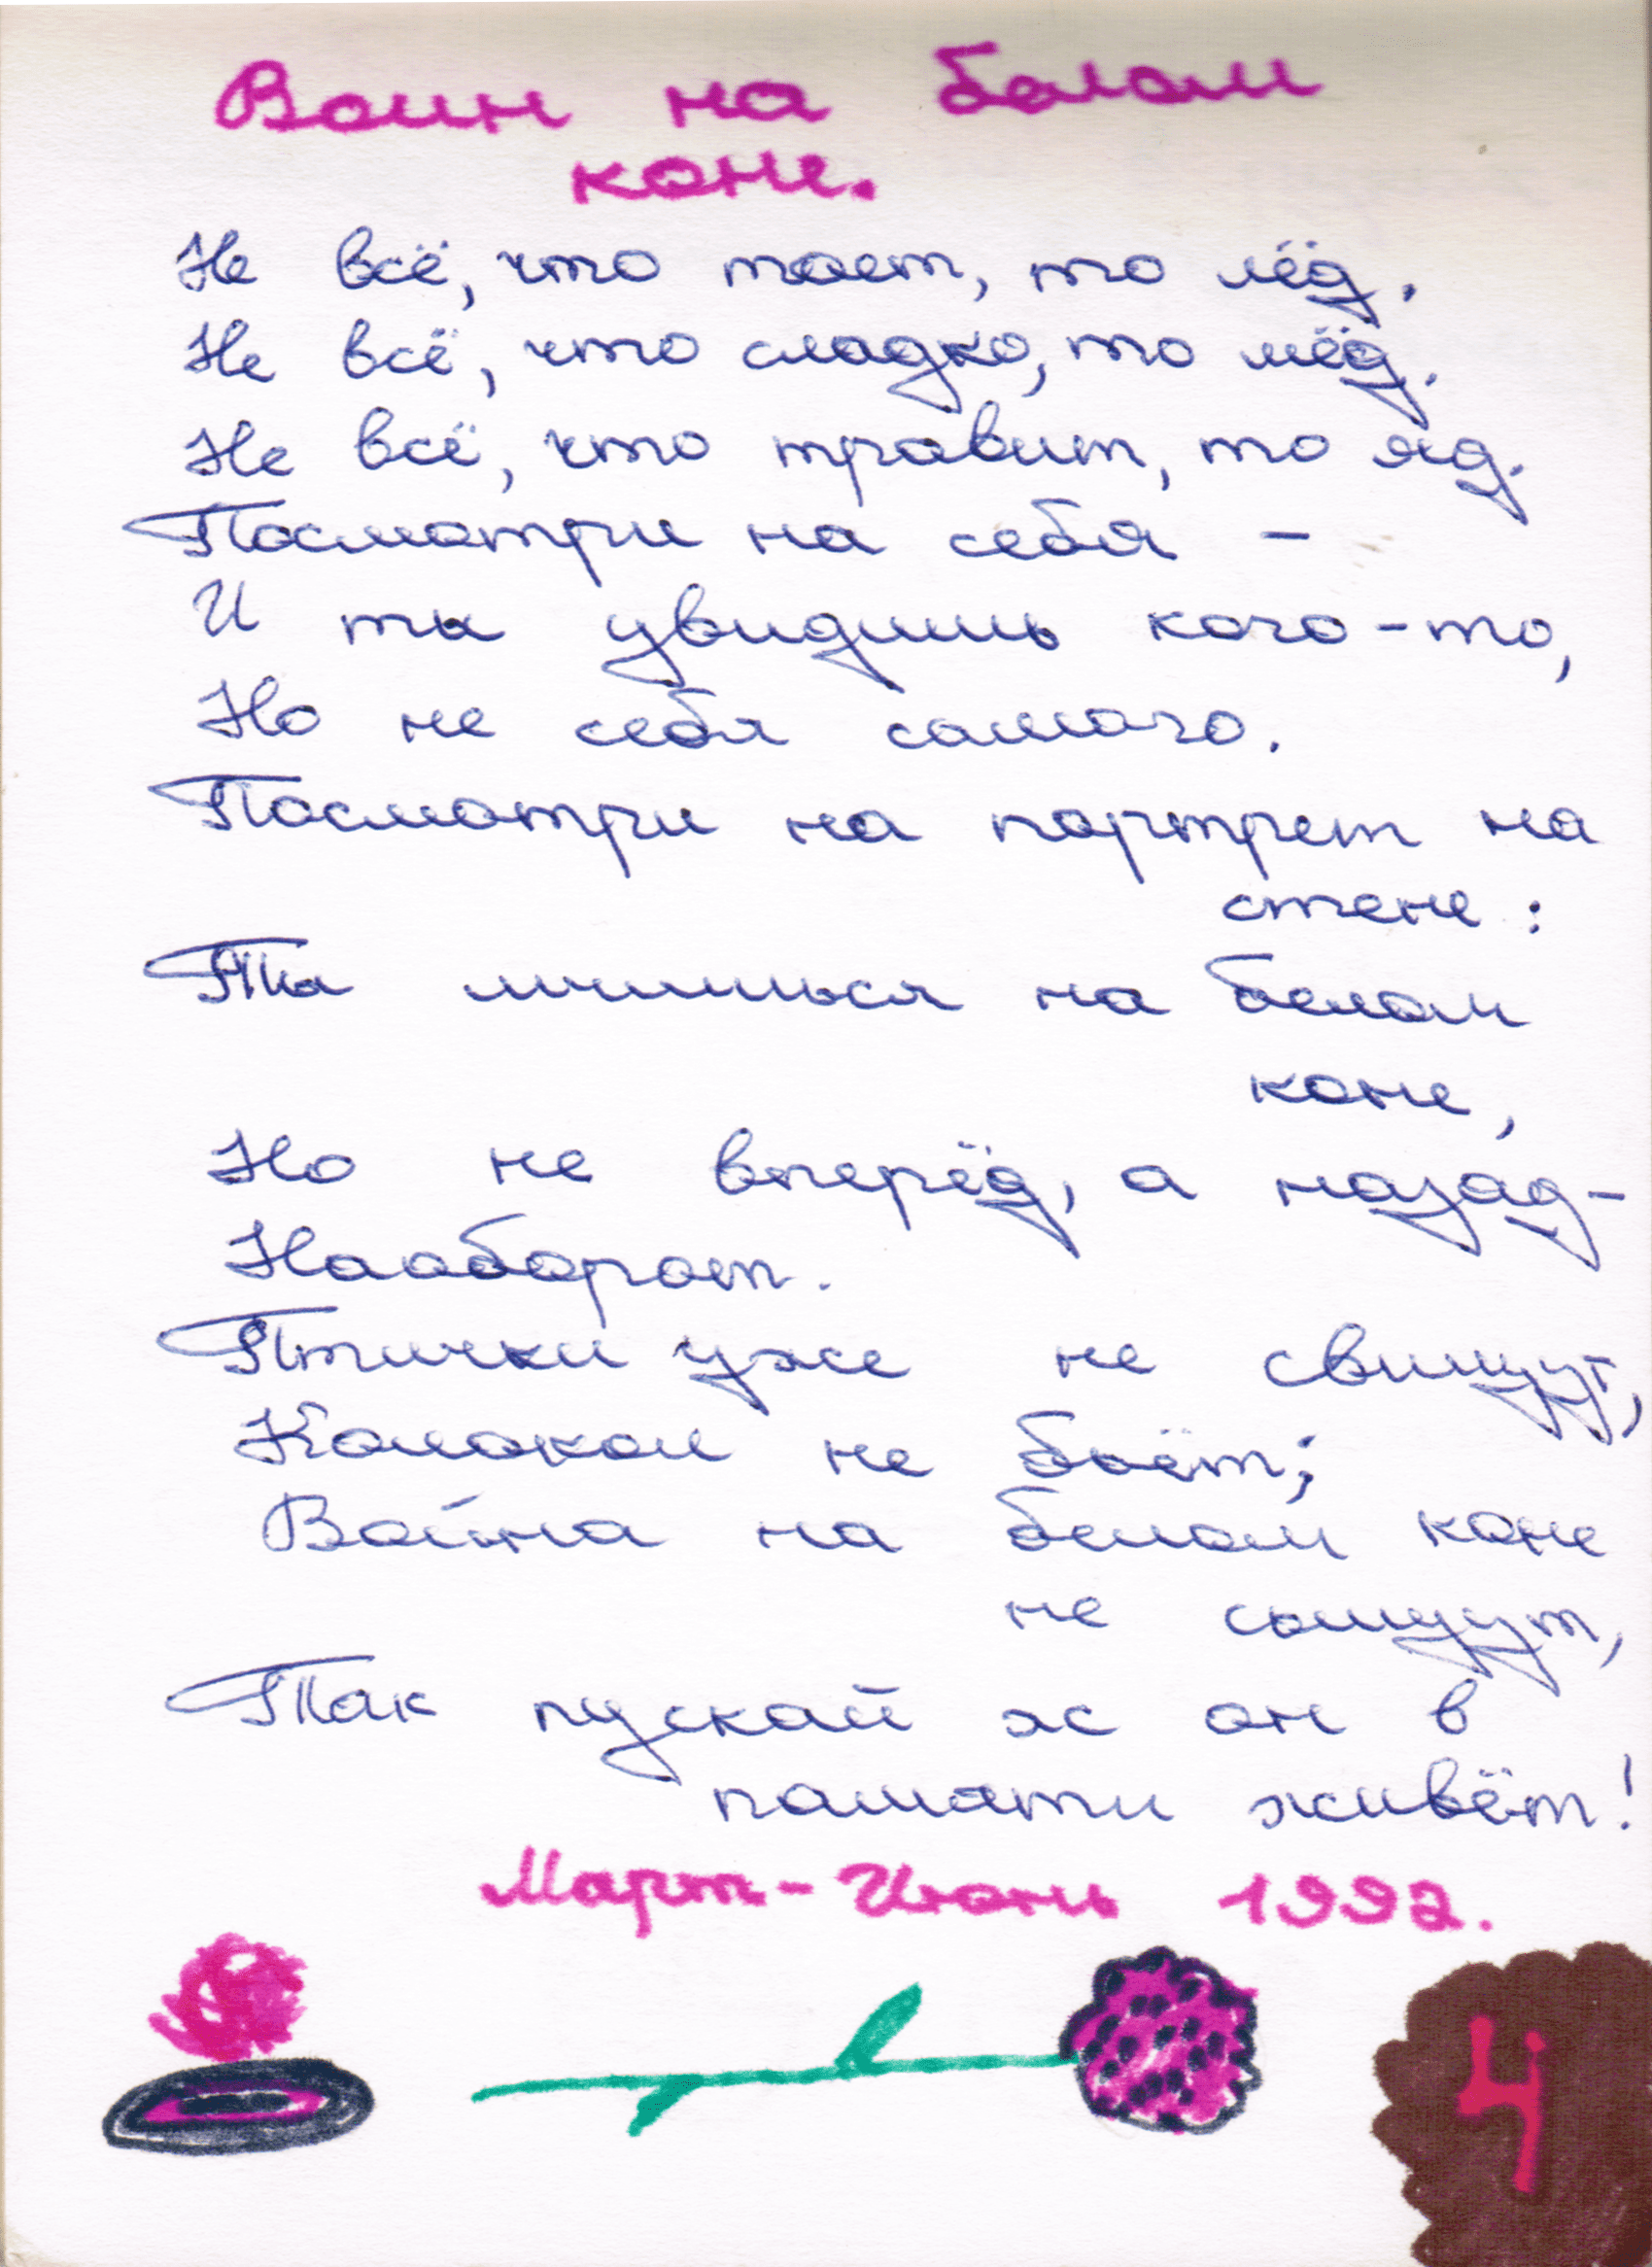 Воин на белом
коне.
Не всё, что тает, то лёд.
Не всё, что сладко, то мёд.
Не всё, что травит, то яд.
Посмотри на себя –
И ты увидишь кого-то,
Но не себя самого.
Посмотри на портрет на
стене:
Ты мчишься на белом
коне,
Но не вперёд, а назад–
Наоборот.
Птички уже не свищут,
Колокол не бьёт;
Война на белом коне
не сыщут,
Так пускай ж он в
памяти живёт!
Март-Июнь 1992.
4